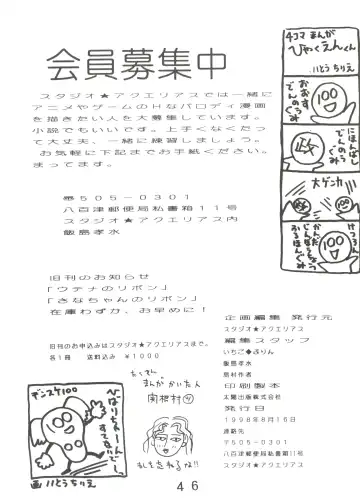 会員募集中
スタジオ★アクエリアスでは一緒に
アニメやゲームのHなパロディ漫画
を描きたい人を大募集しています。
小説でもいいです。上手くなくたっ
て大丈夫、一緒に練習しましょう。
お気軽に下記までお手紙ください。
まってます。
〒505-0301
八百津郵便局私書箱11号
スタジオ★アクエリアス内
飯島孝水
旧刊のお知らせ
「ウテナのリボン」
「さなちゃんのリボン」
在庫わずか、お早めに!
旧刊のお申込みはスタジオ★アクエリアスまで。
各1冊 送料込み ¥1000
企画編集 発行元
スタジオ★アクエリアス
編集スタッフ
いちご◆ぷりん
飯島孝水
原村作者
印刷製本
太陽出版株式会社
発行日
1998年8月16日
連絡先
〒505-0301
八百津郵便局私書箱11号
スタジオ★アクエリアス
4コマまんが
ひゃくえんくん
いとうちりえ
100
おおす
でんのぐみ
政
にほんばし
でんのぐみ
大ゲンカ
100
デンスケ100
画 いとうちりえ
まんがかいた人
実相村
私も忘れるな!!
46